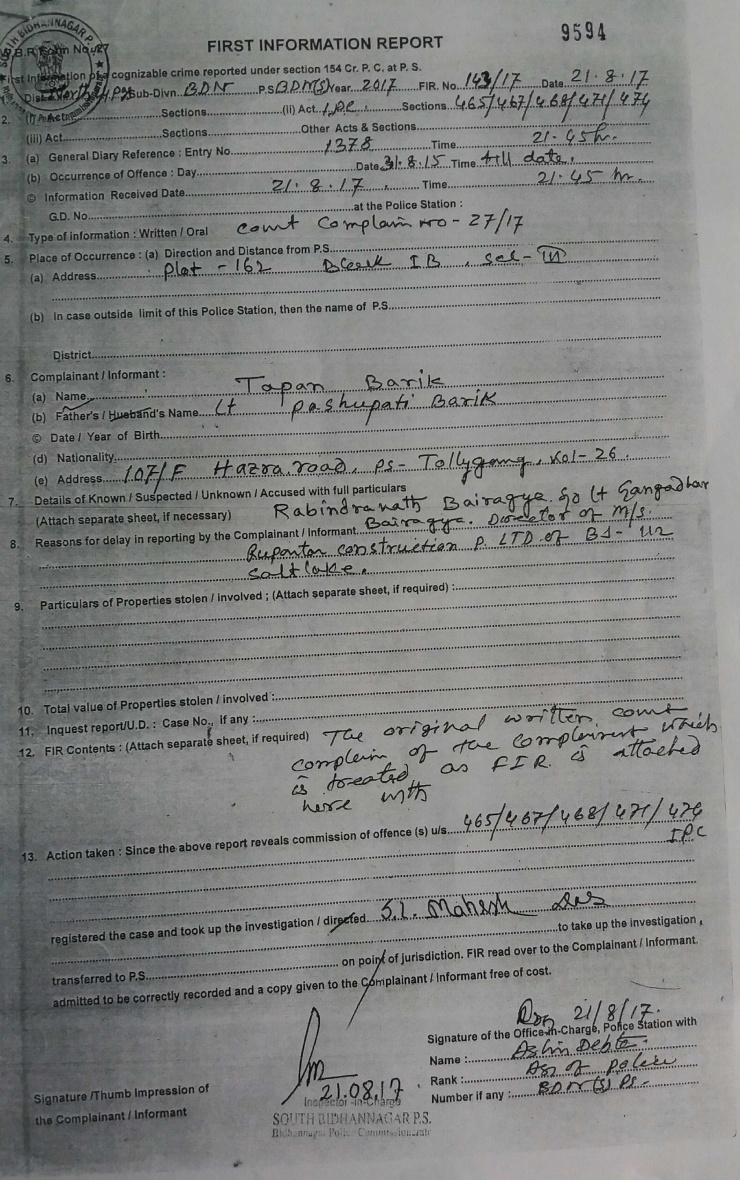 9594
SOUTH BIDHANNAGAR P.S.
FIRST INFORMATION REPORT
First Information of a cognizable crime reported under section 154 Cr. P. C. at P. S.
Dist North 24 Pgs Sub-Divn. BDN P.S BDN(S) Year 2017 FIR. No. 143/17 Date 21.8.17
2. (i) Act Sections (ii) Act IPC Sections 465/467/468/471/474
(iii) Act Sections Other Acts & Sections
3. (a) General Diary Reference : Entry No. 1378 Time 21.45 hr.
(b) Occurrence of Offence : Day Date 31.8.15 Time till date.
© Information Received Date 21.8.17 Time 21.45 hr.
G.D. No. at the Police Station :
4. Type of information : Written / Oral Court Complain No - 27/17
5. Place of Occurrence : (a) Direction and Distance from P.S.
(a) Address Plot - 162 Block IB, Sec - III
(b) In case outside limit of this Police Station, then the name of P.S.
District
6. Complainant / Informant :
(a) Name Tapan Barik
(b) Father's / Husband's Name Lt Pashupati Barik
© Date / Year of Birth
(d) Nationality
(e) Address 107/F Hazra road, PS - Tollygang, Kol - 26.
7. Details of Known / Suspected / Unknown / Accused with full particulars
(Attach separate sheet, if necessary) Rabindranath Bairagya S/o Lt Gangadhar
8. Reasons for delay in reporting by the Complainant / Informant Bairagya. Director of M/s.
Rupantar construction P. LTD of BJ - 112
Saltlake.
9. Particulars of Properties stolen / involved ; (Attach separate sheet, if required) :
10. Total value of Properties stolen / involved :
11. Inquest report/U.D. : Case No., if any :
12. FIR Contents : (Attach separate sheet, if required) The original written court
complain of the complainent which
is treated as FIR is attached
here with
13. Action taken : Since the above report reveals commission of offence (s) u/s 465/467/468/471/474
IPC
registered the case and took up the investigation / directed S.I. Mahesh Das
to take up the investigation,
transferred to P.S. on point of jurisdiction. FIR read over to the Complainant / Informant.
admitted to be correctly recorded and a copy given to the Complainant / Informant free of cost.
21/8/17.
Signature of the Office-in-Charge, Police Station with
Name : Ashin Debta
Rank : ASI of police
Number if any : BDN(S) PS.
21.08.17
Signature /Thumb Impression of
the Complainant / Informant
Inspector-in-Charge
SOUTH BIDHANNAGAR P.S.
Bidhannagar Police Commissionerate